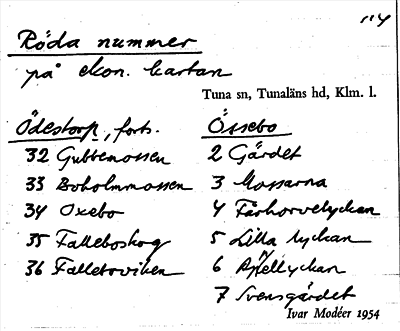 114
Röda nummer
på ekon. kartan
Tuna sn, Tunaläns hd, Klm. l.
Ödestorp, forts.
32 Gubbemossen
33 Boholmmossen
34 Oxebo
35 Falleboskog
36 Falletorviken
Össebo
2 Gärdet
3 Mossarna
4 Fårhorvelyckan
5 Lilla lyckan
6 Pellyckan
7 Svensgärdet
Ivar Modéer 1954